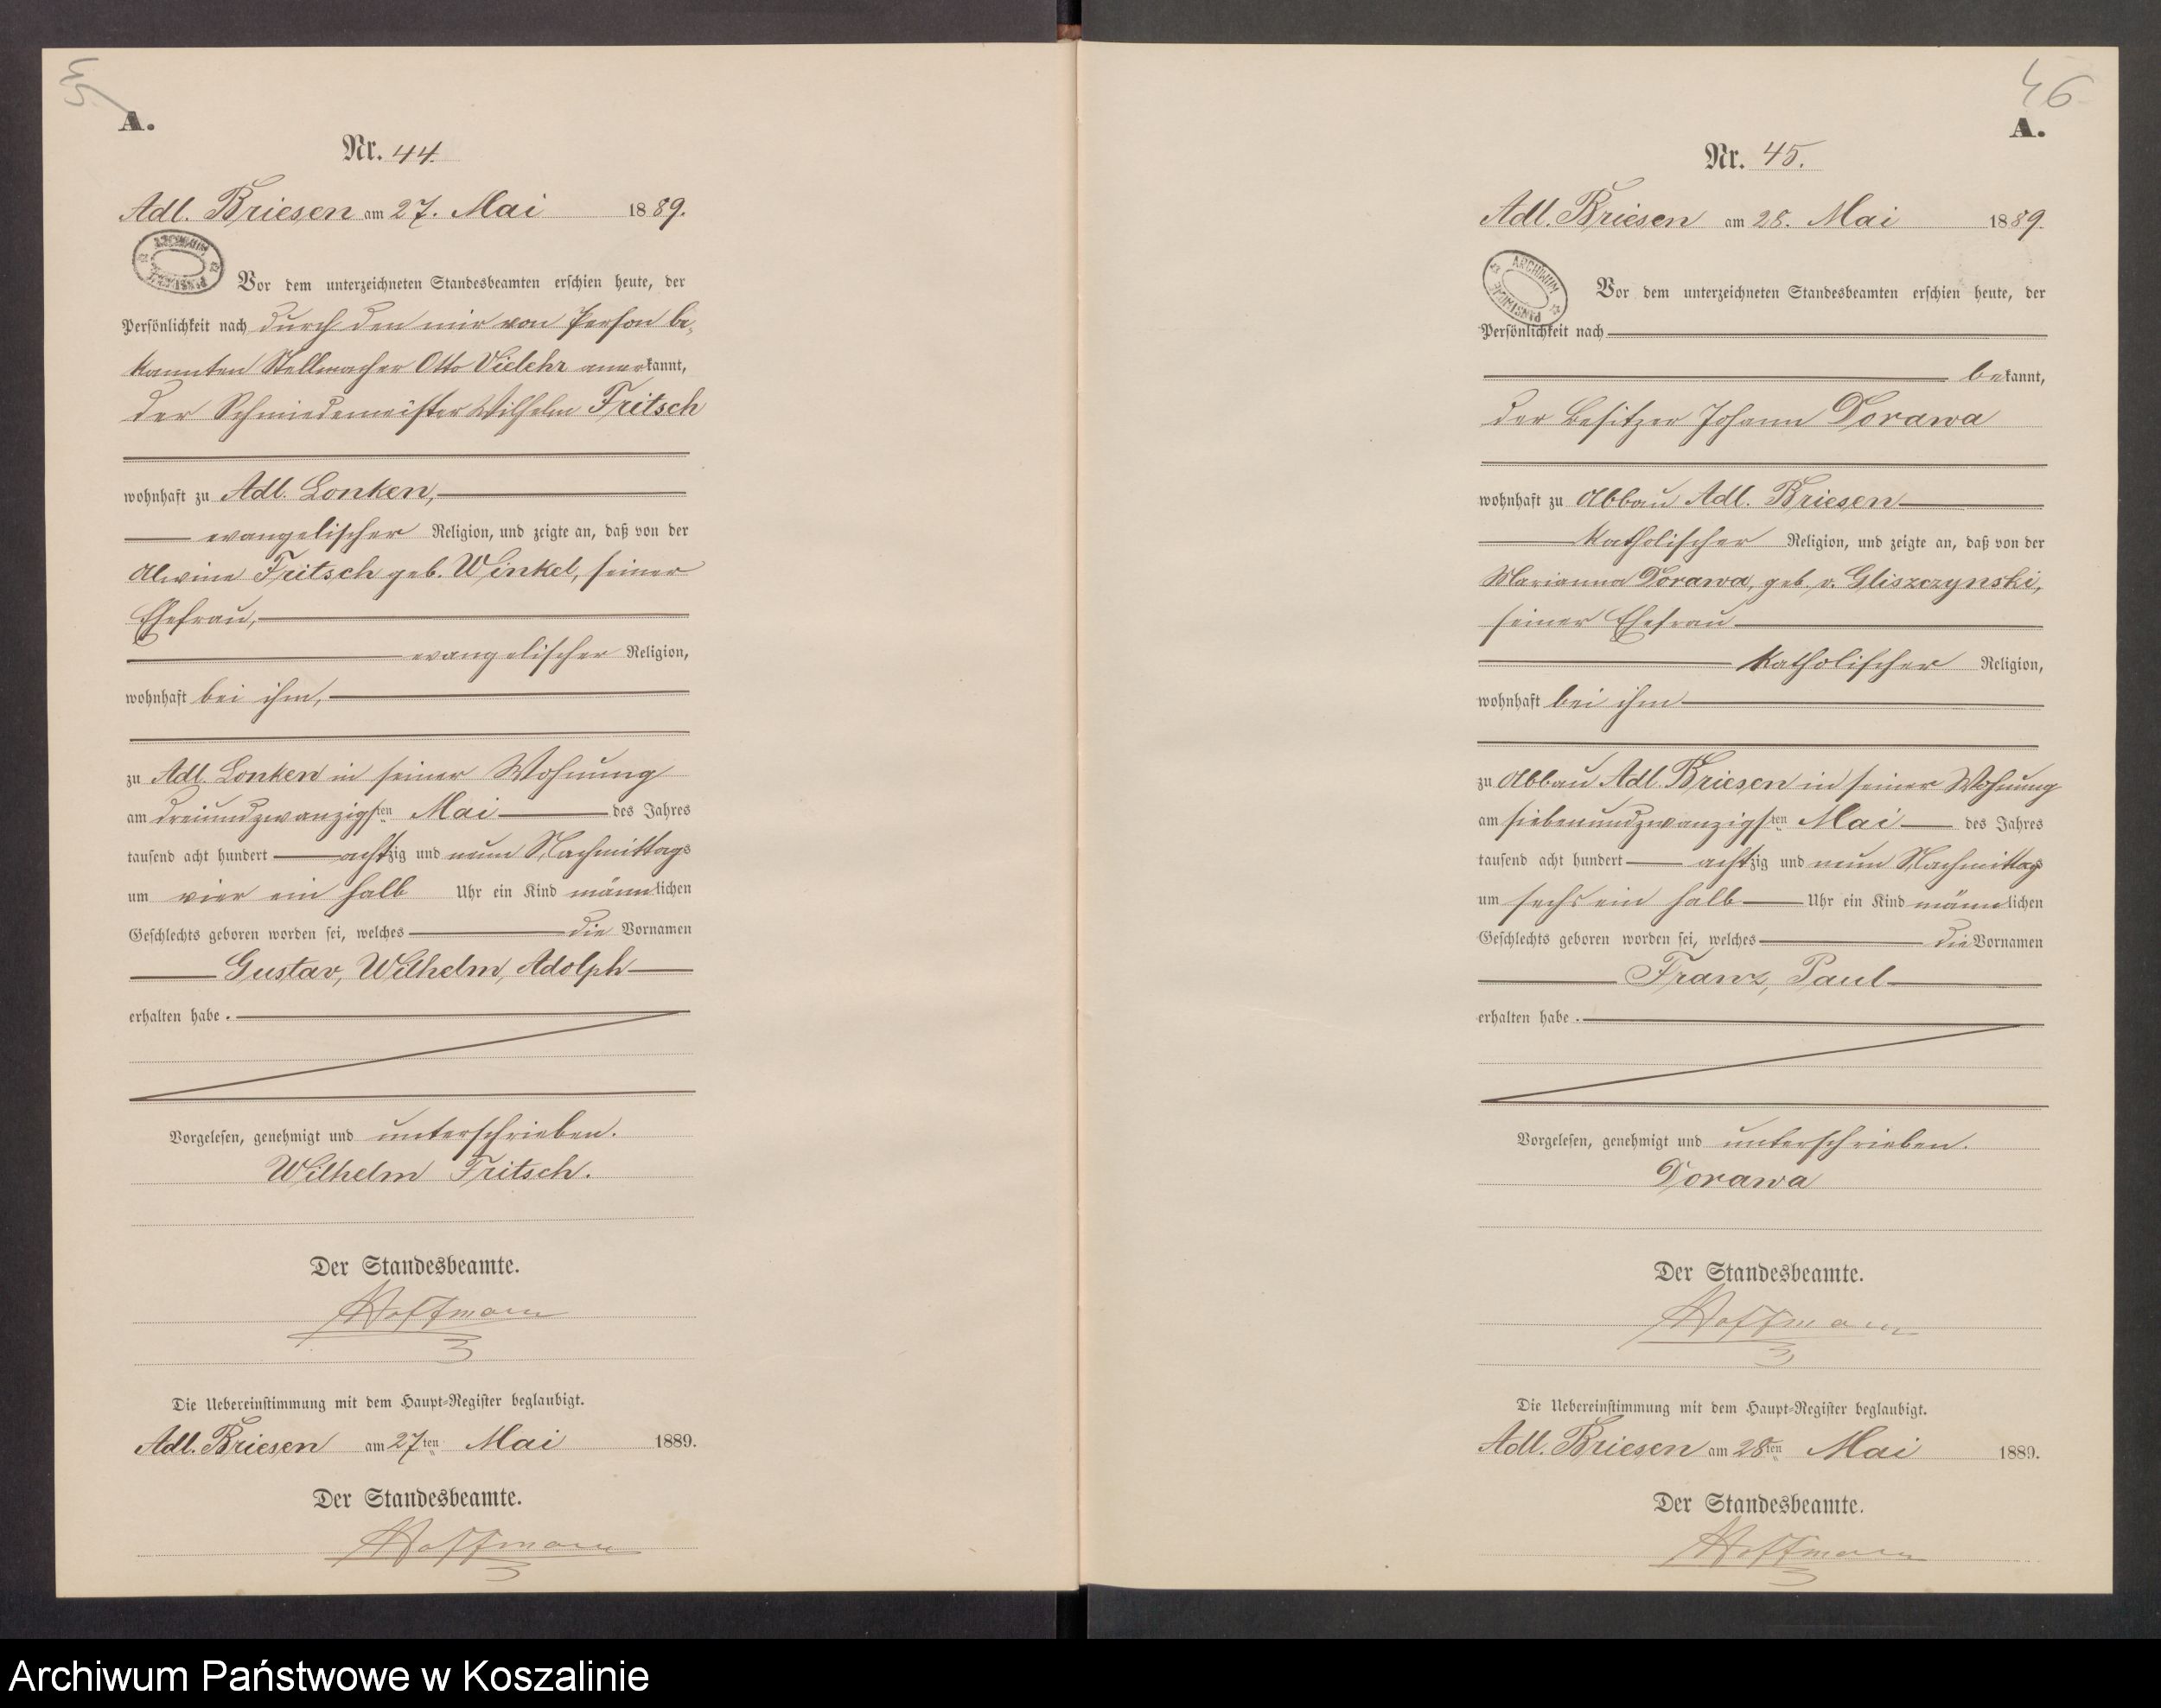 45
A.
Nr. 44.
Adl. Briesen am 27. Mai 1889.
ARCHIWUM PAŃSTWOWE
Vor dem unterzeichneten Standesbeamten erschien heute, der
Persönlichkeit nach durch den mir von Person be-
kannten Stellmacher Otto Vielehr anerkannt,
der Schmiedemeister Wilhelm Fritsch
wohnhaft zu Adl. Lonken,
evangelischer Religion, und zeigte an, daß von der
Alwine Fritsch geb. Winkel, seiner
Ehefrau,
evangelischer Religion,
wohnhaft bei ihm,
zu Adl. Lonken in seiner Wohnung
am dreiundzwanzigsten Mai des Jahres
tausend acht hundert achtzig und neun Nachmittags
um vier ein halb Uhr ein Kind männlichen
Geschlechts geboren worden sei, welches die Vornamen
Gustav, Wilhelm, Adolph
erhalten habe.
Vorgelesen, genehmigt und unterschrieben.
Wilhelm Fritsch.
Der Standesbeamte.
Hoffmann
Die Uebereinstimmung mit dem Haupt-Register beglaubigt.
Adl. Briesen am 27ten Mai 1889.
Der Standesbeamte.
Hoffmann
46
A.
Nr. 45.
Adl. Briesen am 28. Mai 1889.
ARCHIWUM PAŃSTWOWE
Vor dem unterzeichneten Standesbeamten erschien heute, der
Persönlichkeit nach
bekannt,
der Besitzer Johann Dorawa
wohnhaft zu Abbau Adl. Briesen
katholischer Religion, und zeigte an, daß von der
Marianna Dorawa, geb. v. Gliszczynski,
seiner Ehefrau
katholischer Religion,
wohnhaft bei ihm
zu Abbau Adl. Briesen in seiner Wohnung
am siebenundzwanzigsten Mai des Jahres
tausend acht hundert achtzig und neun Nachmittags
um sechs ein halb Uhr ein Kind männlichen
Geschlechts geboren worden sei, welches die Vornamen
Franz, Paul
erhalten habe.
Vorgelesen, genehmigt und unterschrieben.
Dorawa
Der Standesbeamte.
Hoffmann
Die Uebereinstimmung mit dem Haupt-Register beglaubigt.
Adl. Briesen am 28ten Mai 1889.
Der Standesbeamte.
Hoffmann
Archiwum Państwowe w Koszalinie